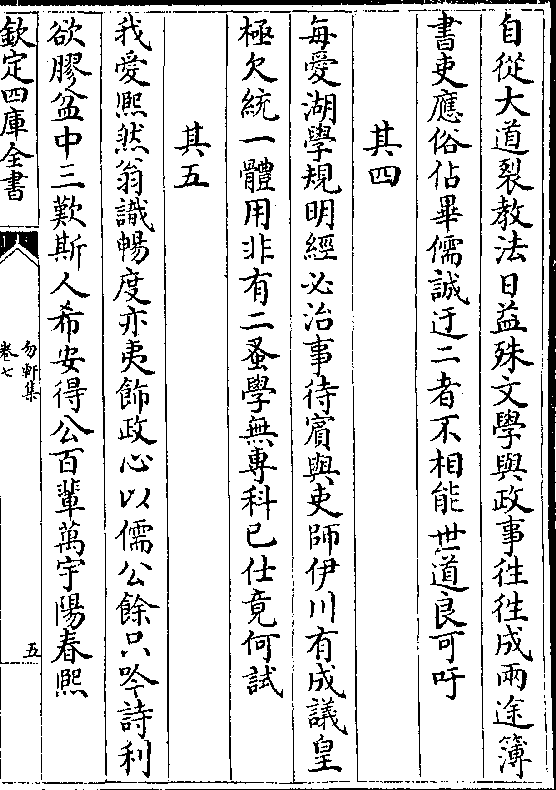 自從大道裂教法日益殊文學與政事徃徃成兩途簿
書吏應俗佔畢儒誠迂二者不相能世道良可吁
其四
每愛湖學規明經必治事待賔與吏師伊川有成議皇
極欠統一體用非有二蚤學無專科已仕竟何試
其五
我愛熈然翁識暢度亦夷飾政心以儒公餘只吟詩利
欲膠盆中三歎斯人希安得公百輩萬宇陽春熈
欽定四庫全書
勿軒集
卷七
五